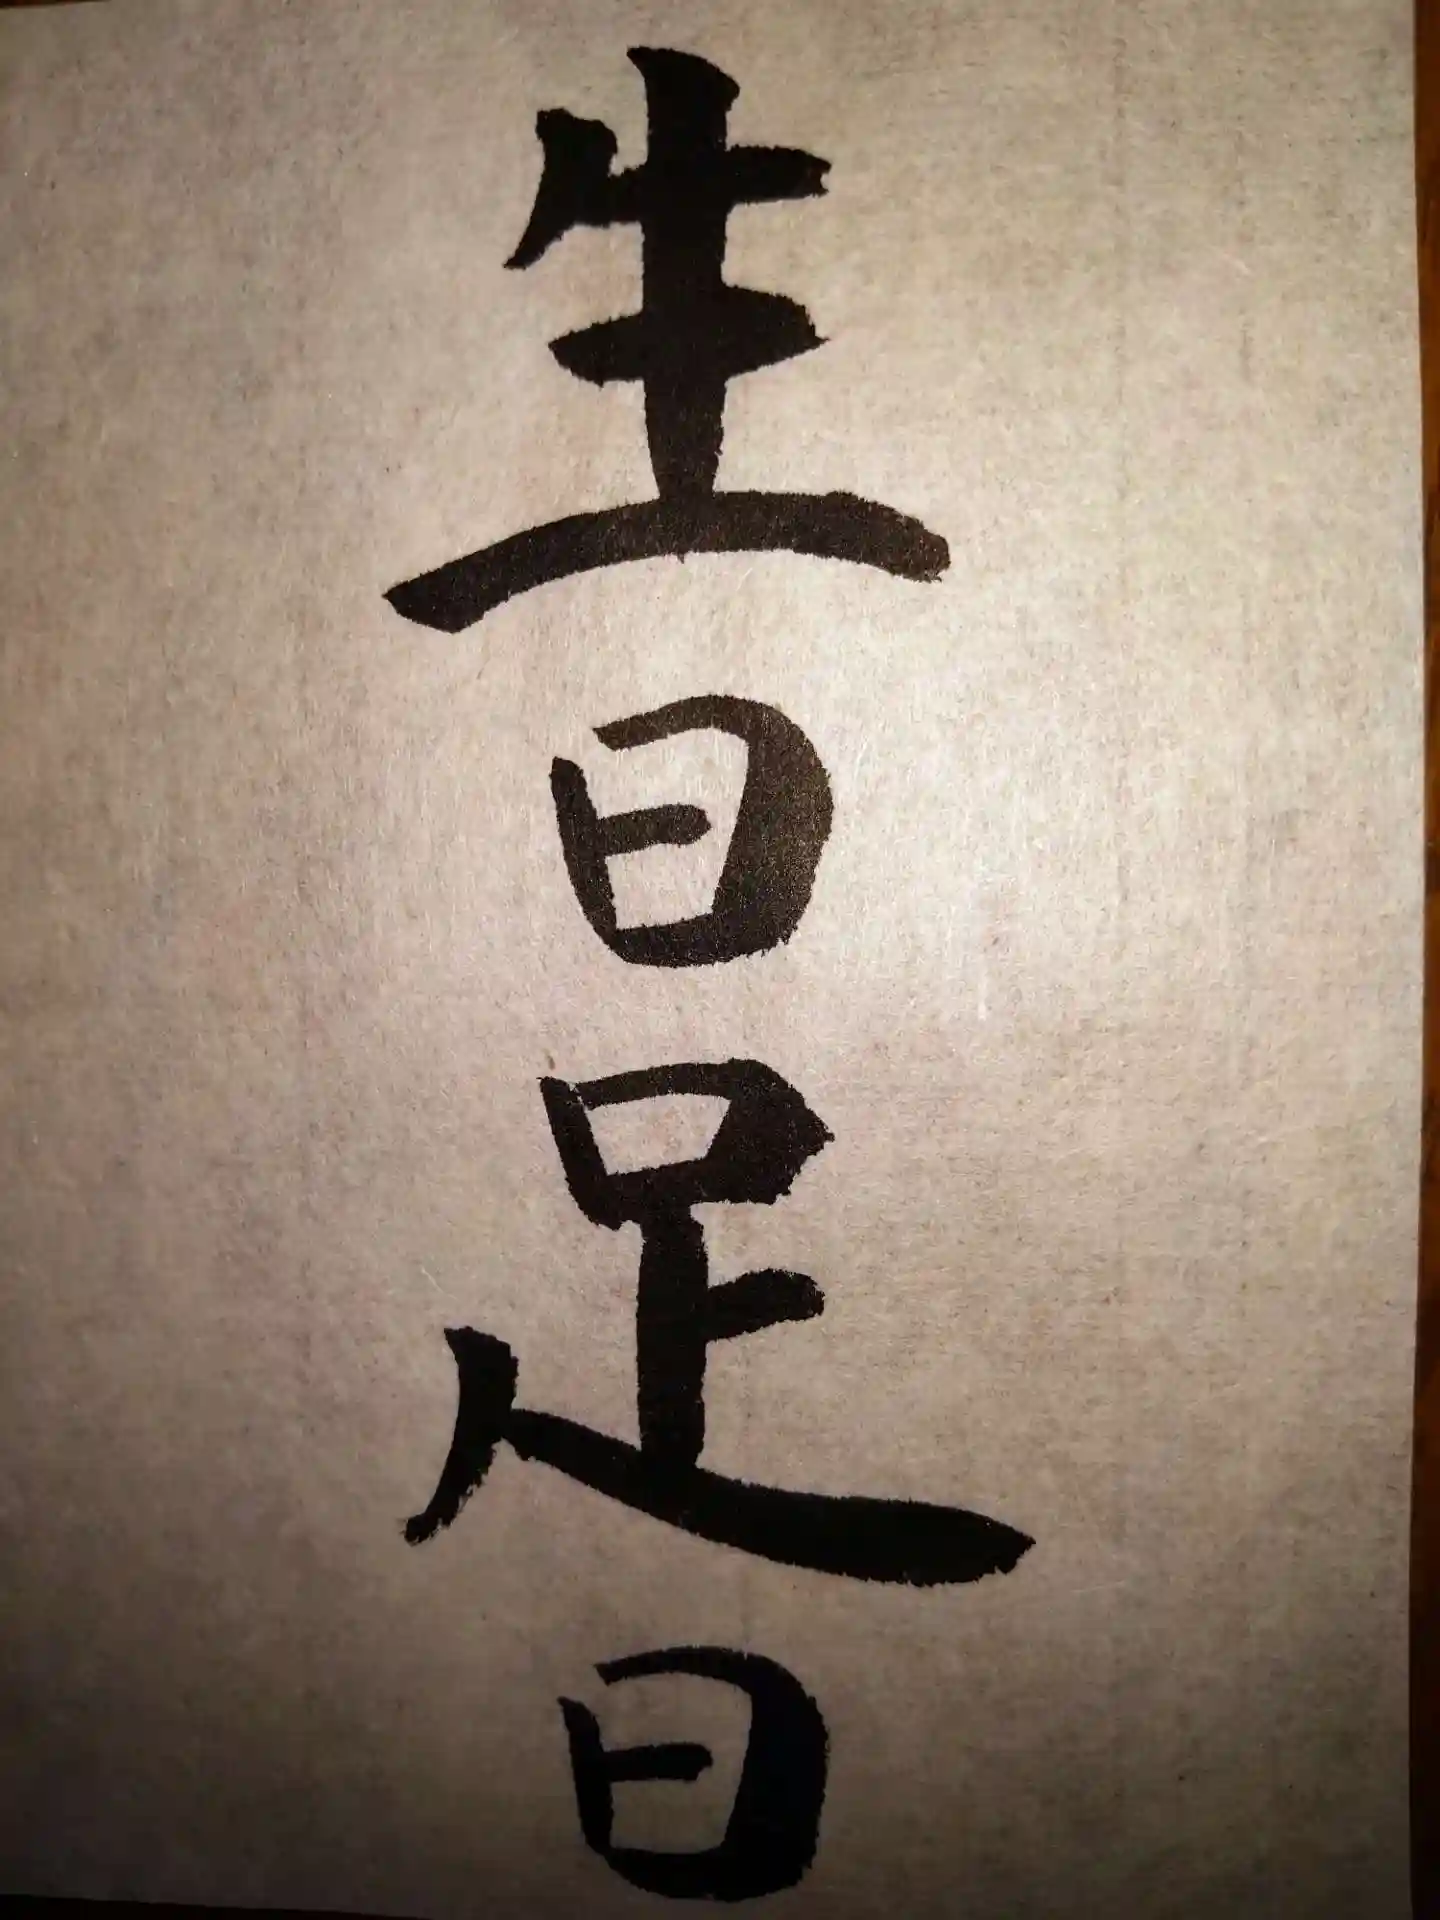 生日足日